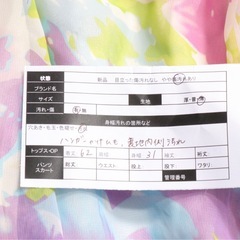 状態 新品 目立った傷汚れなし やや傷汚れあり
ブランド名
サイズ 生地 厚・普・薄
汚れ・傷 有・無
身幅汚れの箇所など
穴あき・毛玉・色褪せ・
ハンガーかけひも、裏地内側汚れ
トップス・OP 着丈 62 肩丈 31 袖丈 裄丈
パンツ 総丈 ウエスト 股上 股下 ワタリ
スカート
管理番号